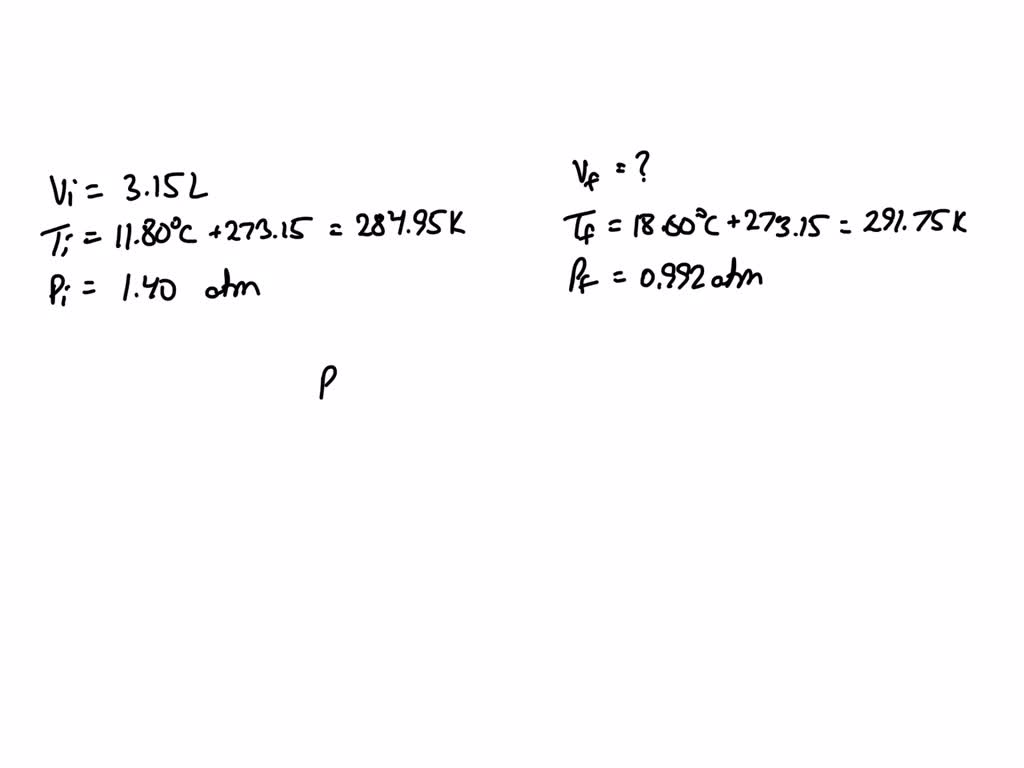 Vi = 3.15 L
Ti = 11.80°C + 273.15 = 284.95 K
Pi = 1.40 atm
Vf = ?
Tf = 18.60°C + 273.15 = 291.75 K
Pf = 0.992 atm
P